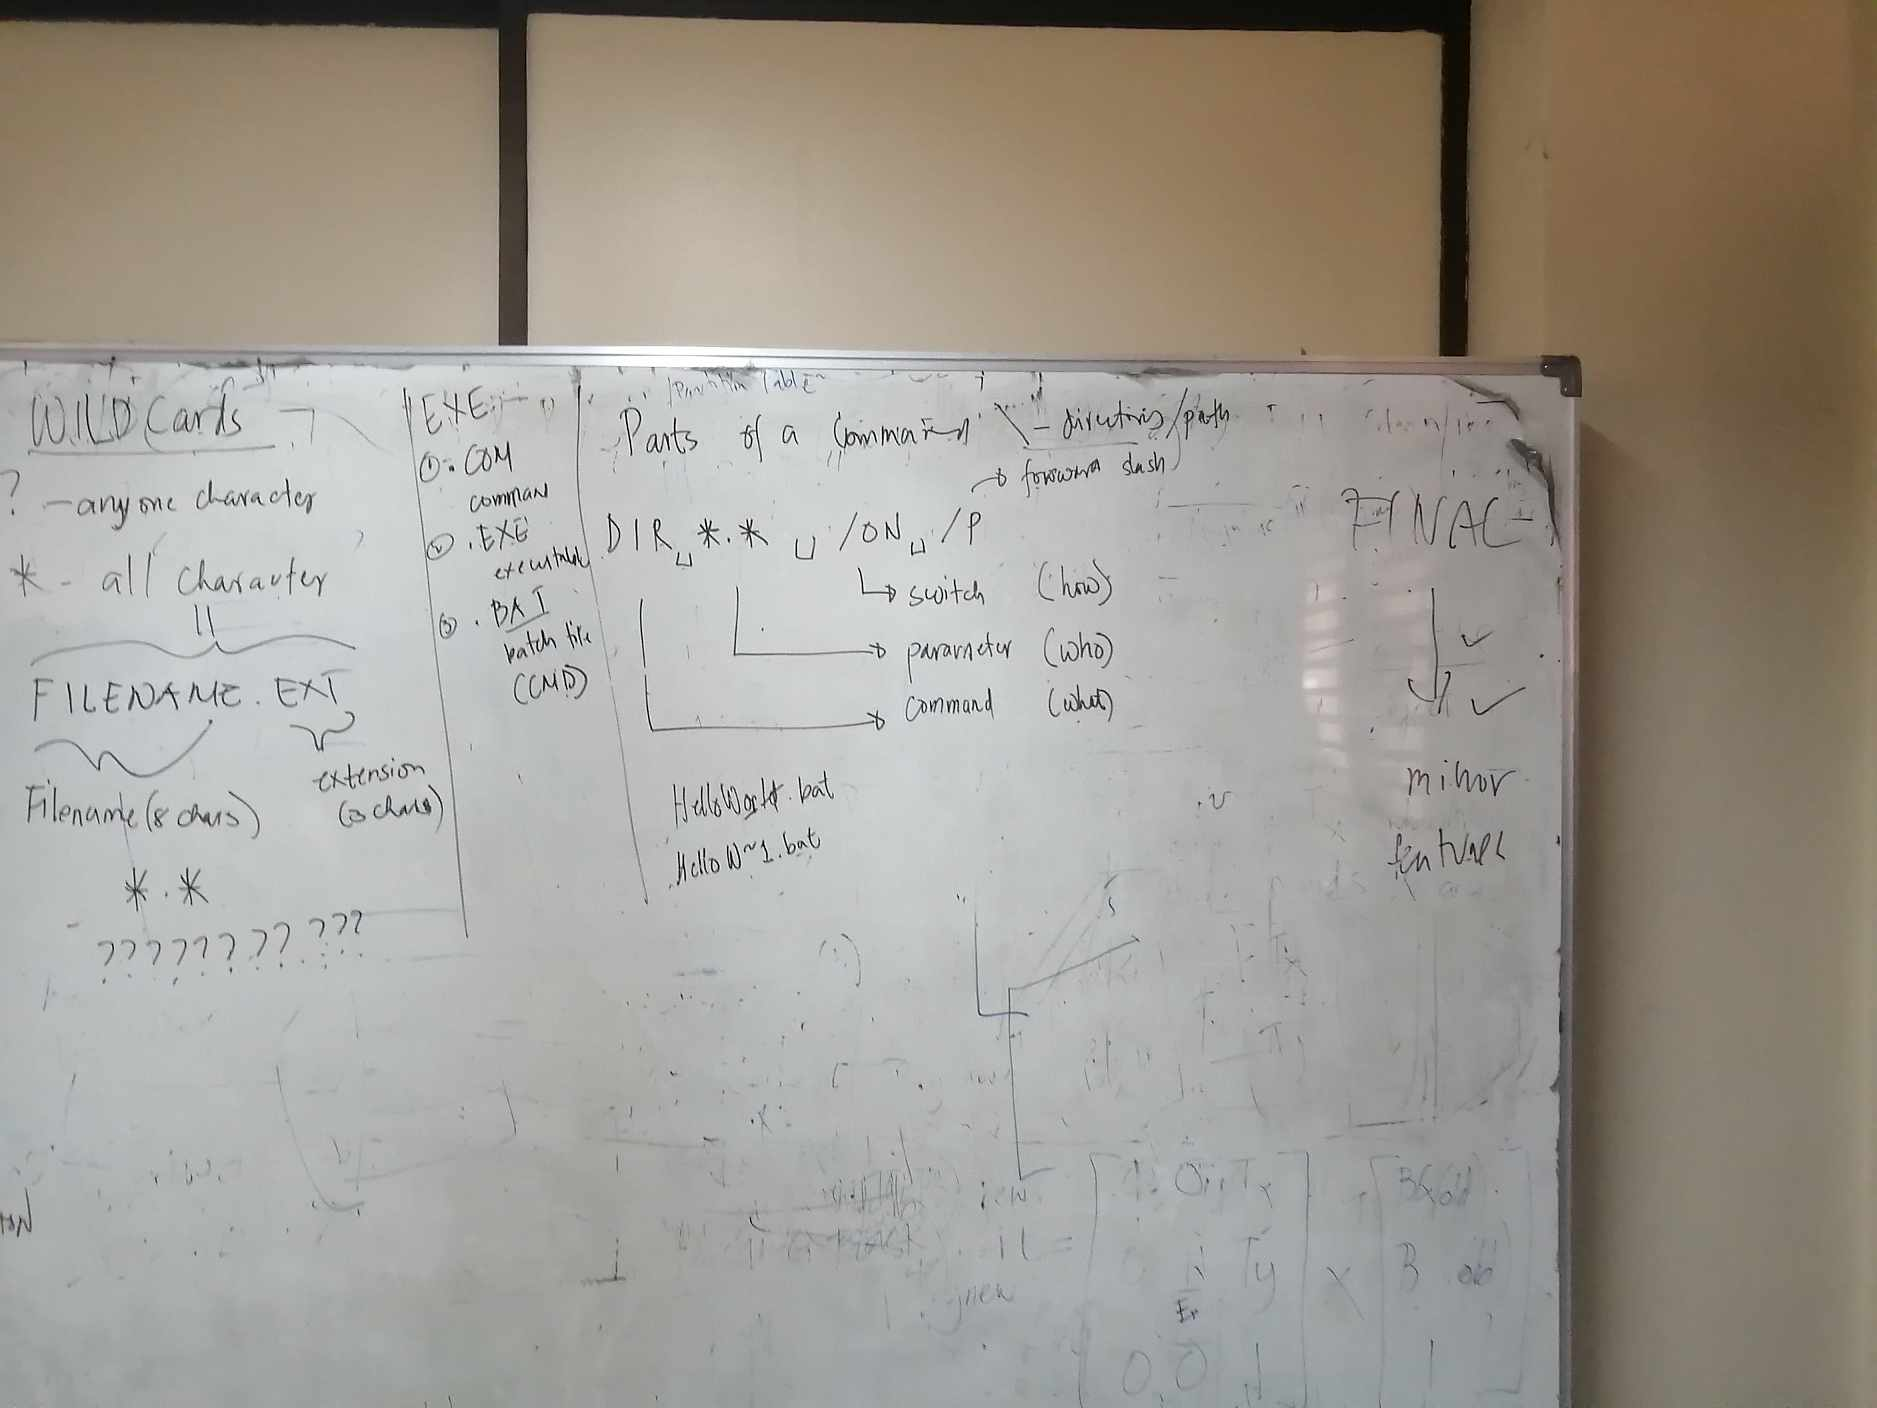 WILD Cards
? - anyone character
* - all character
FILENAME.EXT
Filename (8 chars)
extension
(3 chars)
*.*
???????? ???
EXE:-
① .COM
comman
② .EXE
executable
③ .BAT
batch file
(CMD)
Partition Table
Parts of a Command \ - directories/path
forward slash
DIR␣*.* ␣ /ON␣/P
switch (how)
parameter (who)
command (what)
HelloWorld.bat
HelloW~1.bat
FINAL
minor
features
Tx
old
Ty
old
jnew
0 0 1
1